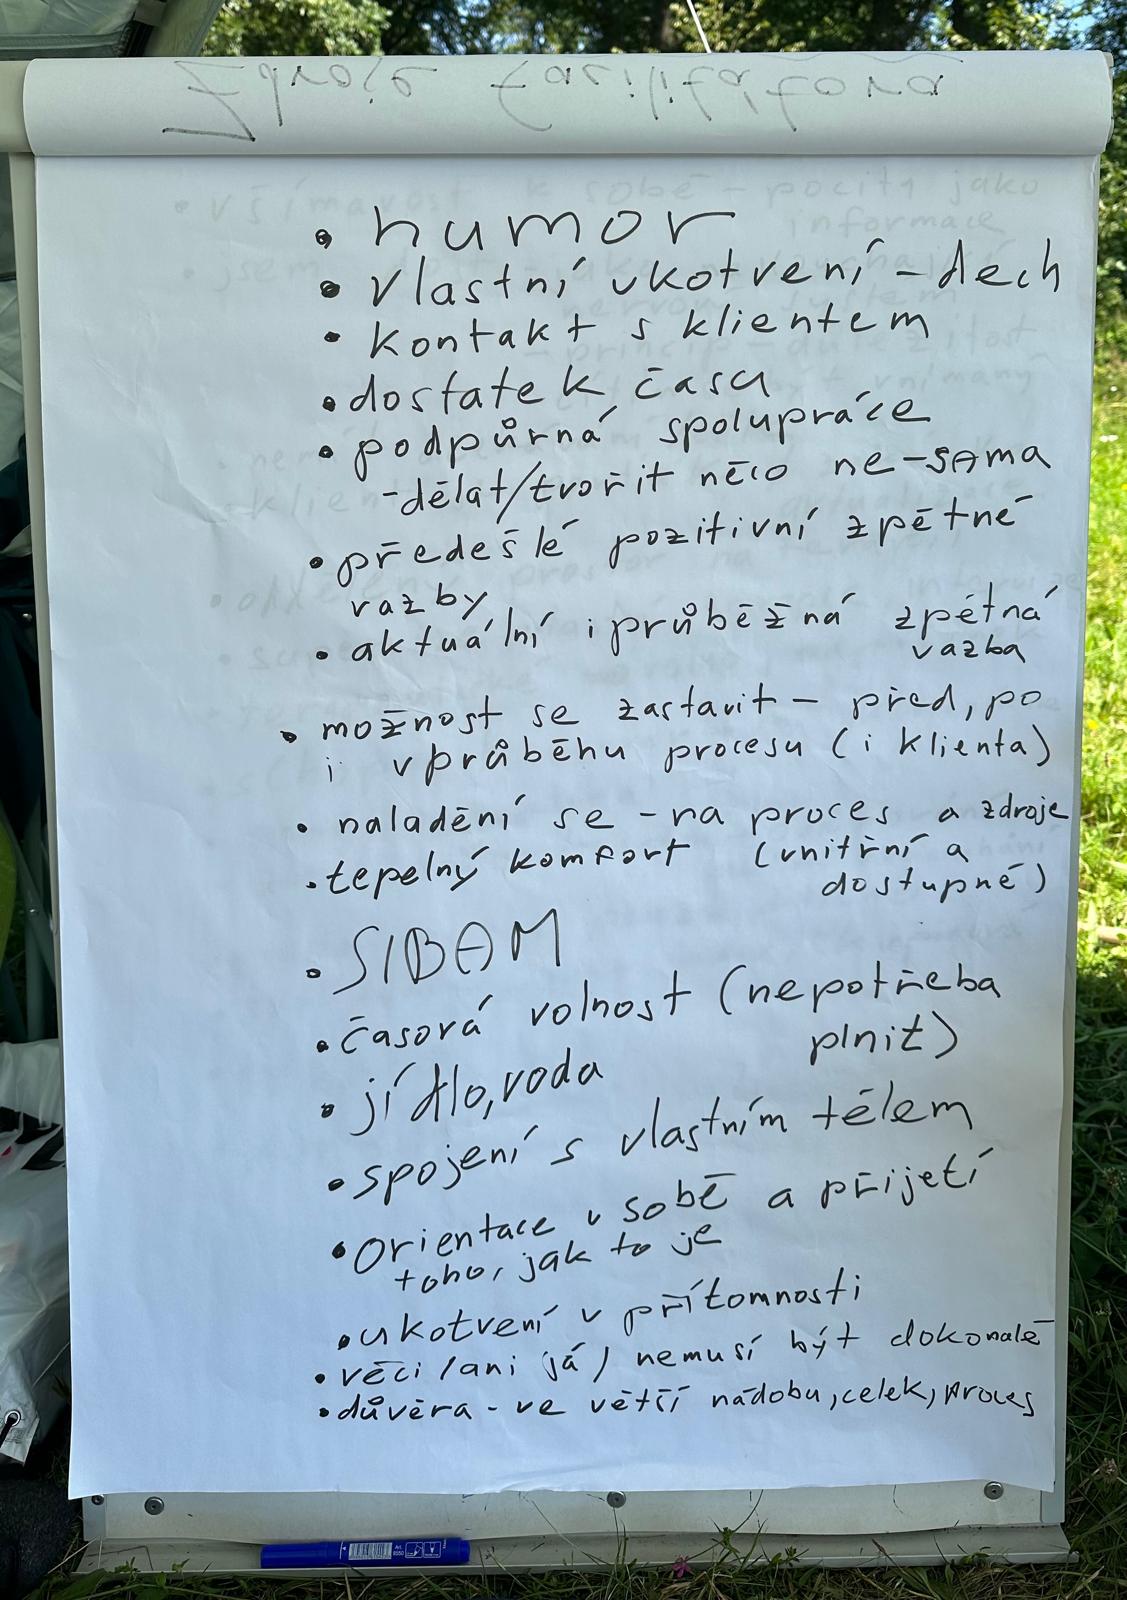 Zdroje facilitátora
• humor
• vlastní ukotvení - dech
• kontakt s klientem
• dostatek času
• podpůrná spolupráce
- dělat/tvořit něco ne-sama
• předešlé pozitivní zpětné
vazby
• aktuální i průběžná zpětná
vazba
• možnost se zastavit - před, po
i v průběhu procesu (i klienta)
• naladění se - na proces a zdroje
(vnitřní a
dostupné)
• tepelný komfort
• SIBAM
• časová volnost (nepotřeba
plnit)
• jídlo, voda
• spojení s vlastním tělem
• orientace v sobě a přijetí
toho, jak to je
• ukotvení v přítomnosti
• věci (ani já) nemusí být dokonalé
• důvěra - ve větší nádobu, celek, proces